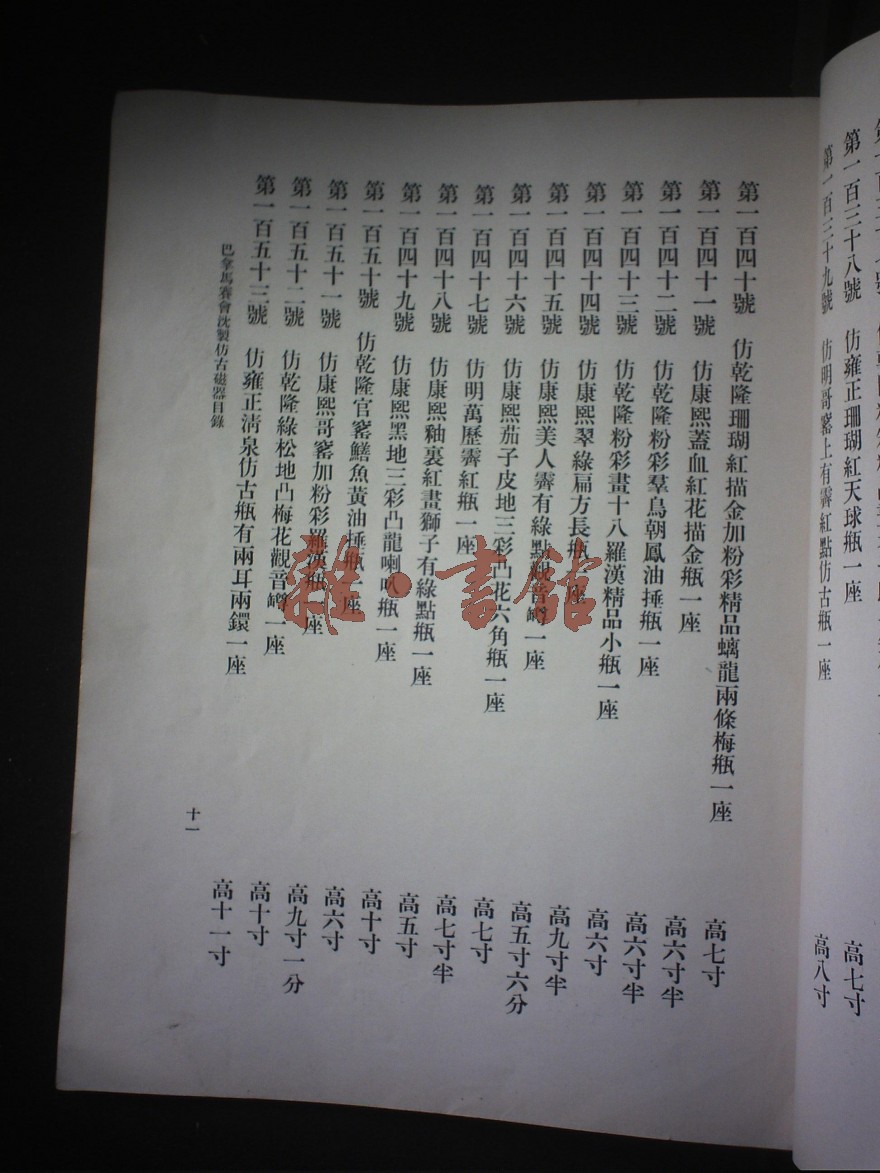 第一百三十八號　仿雍正珊瑚紅天球瓶一座　高七寸
第一百三十九號　仿明哥窰上有霽紅點仿古瓶一座　高八寸
第一百四十號　仿乾隆珊瑚紅描金加粉彩精品螭龍兩條梅瓶一座　高七寸
第一百四十一號　仿康熙蓋血紅花描金瓶一座　高六寸半
第一百四十二號　仿乾隆粉彩羣鳥朝鳳油捶瓶一座　高六寸半
第一百四十三號　仿乾隆粉彩畫十八羅漢精品小瓶一座　高六寸
第一百四十四號　仿康熙翠綠扁方長瓶一座　高九寸半
第一百四十五號　仿康熙美人霽有綠點觀音罇一座　高五寸六分
第一百四十六號　仿康熙茄子皮地三彩凸花六角瓶一座　高七寸
第一百四十七號　仿明萬歷霽紅瓶一座　高七寸半
第一百四十八號　仿康熙釉裏紅畫獅子有綠點瓶一座　高五寸
第一百四十九號　仿康熙黑地三彩凸龍喇叭瓶一座　高十寸
第一百五十號　仿乾隆官窰鱔魚黃油捶瓶一座　高六寸
第一百五十一號　仿康熙哥窰加粉彩羅漢瓶一座　高九寸一分
第一百五十二號　仿乾隆綠松地凸梅花觀音罇一座　高十寸
第一百五十三號　仿雍正淸泉仿古瓶有兩耳兩鐶一座　高十一寸
巴拿馬賽會沈製仿古磁器目錄
十一
雜·書館